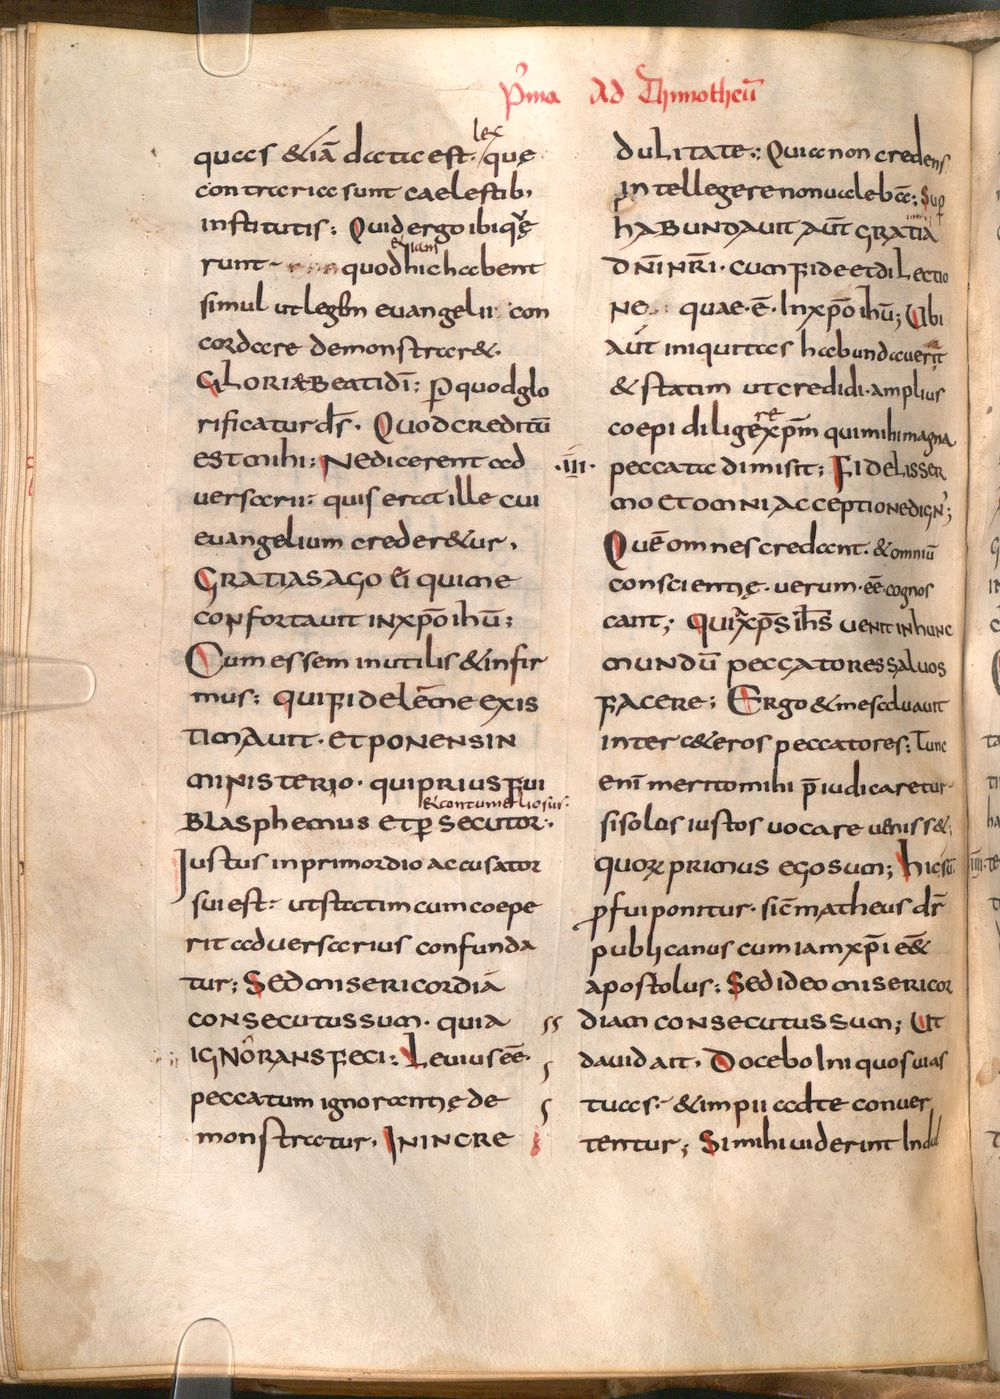 P̄ma Ad Thimotheū
lex
quaes &iā data est. que
contraria sunt caelestib,
institutis: Quid ergo ibi qȩ
etiam
runt quod hic habent
simul ut legem evangelii con
cordare demonstrar&.
GLORIAE BEATI DĪ: P quod glo
rificatur ds̄. QUOD CREDITŪ
EST MIHI: Ne dicerent ad
versarii: quis erat ille cui
evangelium creder&ur,
GRATIAS AGO ei qui me
confortavit IN xp̄o ihū;
Cum essem inutilis & infir
mus: QUI FIDELĒ ME EXIS
TIMAVIT. ET PONENS IN
MINISTERIO. QUI PRIUS FUI
& contumeliosus.
BLASPHEMUS ET PSECUTOR.
Justus in primordio accusator
sui est: ut statim cum coepe
rit adversarius confunda
tur; SED MISERICORDIĀ
CONSECUTUS SUM. QUIA
IGNORANS FECI: Levius eē.
peccatum ignorantiȩ de
monstratur, IN INCRE
DULITATE: Quia non credens
intellegere non valebā: Sup
HABUNDAVIT AUT̄ GRATIA
DN̄I NR̄I. CUM FIDE ET DILECTIO
NE quae. ē. IN xp̄o ihū; Ubi
aūt iniquitas habundaverat
& statim ut credidi. amplius
re
coepi dilige xp̄m qui mihi magna
.III. peccata dimisit; FIDELIS SER
MO ET OMNI ACCEPTIONE DIGN';
Quē omnes credant. & omniū
conscientiȩ. verum. eē cognos
cant; QUIA xp̄s ih̄s VENIT IN HUNC
MUNDŪ PECCATORES SALVOS
FACERE; Ergo & me salvavit
inter c&eros peccatores: Tunc
enī merito mihi p̄iudicaretur
si solos iustos vocare veniss&;
QUORUM PRIMUS EGO SUM; hic sū
p fui ponitur. sic̄ matheus dr̄
publicanus cum iam xp̄i eē&
apostolus: SED IDEO MISERICOR
DIAM CONSECUTUS SUM; Ut
david ait. Docebo iniquos vias
tuas: & impii ad te conver
tentur; Si mihi viderint ind